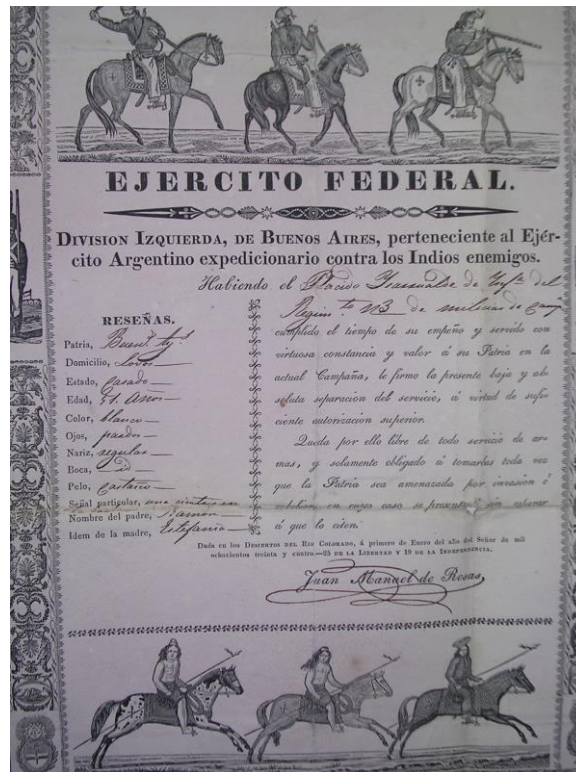 EJERCITO FEDERAL.
DIVISION IZQUIERDA, DE BUENOS AIRES, perteneciente al Ejér-
cito Argentino expedicionario contra los Indios enemigos.
Habiendo el Placido de del
Regim.to N3 de milicias de
RESEÑAS.
Patria, Buen.s Ay.s
Domicilio, Lovos
Estado, Casado
Edad, 51. Años
Color, blanco
Ojos, pardos
Nariz, regular
Boca, id
Pelo, castaño
Señal particular, una
Nombre del padre, Ramon
Idem de la madre, Estefania
cumplido el tiempo de su empeño y servido con
virtuosa constancia y valor á su Patria en la
actual Campaña, le firmo la presente baja y ab
soluta separacion del servicio, á virtud de sufi-
ciente autorizacion superior.
Queda por ello libre de todo servicio de ar-
mas, y solamente obligado á tomarlas toda vez
que la Patria sea amenazada por invasion ó
rebelion, en cuyo caso se presentará sin esperar
á que lo citen.
Dada en los DESIERTOS DEL RIO COLORADO, á primero de Enero del año del Señor de mil
ochocientos treinta y cuatro.—25 DE LA LIBERTAD Y 19 DE LA INDEPENDENCIA.
Juan Manuel de Rosas,